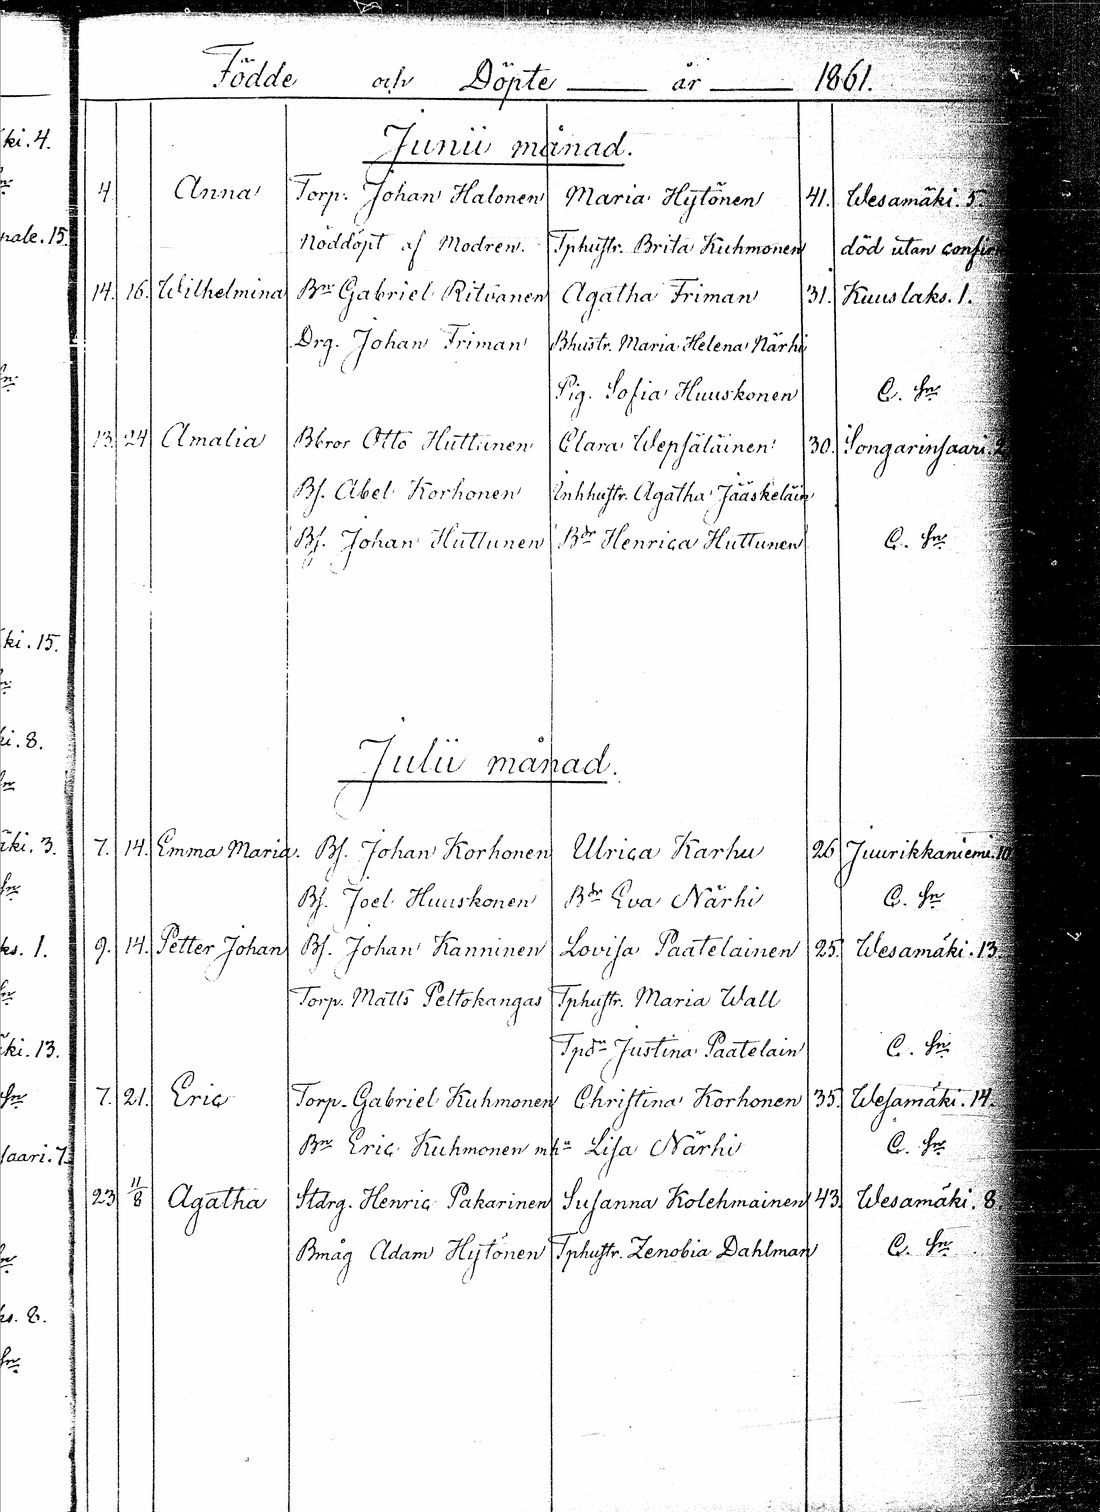 Födde och Döpte år 1861.
Junii månad.
4 Anna Torp. Johan Halonen Maria Hytönen 41. Wesamäki. 5.
Nöddöpt af Modren. Tphustr. Brita Kuhmonen död utan
14. 16. Wilhelmina Bn Gabriel Ritvanen Agatha Friman 31. Kuuslaks. 1.
Drg. Johan Friman Bhustr. Maria Helena Närhi
Pig. Sofia Huuskonen C. Hn
13. 24 Amalia Bbror Otto Huttunen Clara Wepsäläinen 30. Songarinsaari. 2
Bs. Abel Korhonen Inhhustr. Agatha Jääskeläin
Bs. Johan Huttunen Bdr Henrica Huttunen C. Hn
Julii månad.
7. 14. Emma Maria. Bs. Johan Korhonen Ulrica Karhu 26 Juurikkaniemi. 10
Bs. Joel Huuskonen Bdr Eva Närhi C. Hn
9. 14. Petter Johan Bs. Johan Kanninen Lovisa Paatelainen 25. Wesamäki. 13.
Torp. Matts Peltokangas Tphustr. Maria Wall
Tpdr Justina Paatelain C. Hn
7. 21. Eric Torp. Gabriel Kuhmonen Christina Korhonen 35. Wesamäki. 14.
Bn Eric Kuhmonen mha Lisa Närhi C. Hn
23 11/8 Agatha Stdrg. Henric Pakarinen Susanna Kolehmainen 43. Wesamäki. 8.
Bmåg Adam Hytönen Tphustr. Zenobia Dahlman C. Hn
ki. 4.
nale. 15.
ki. 15.
ki. 8.
äki. 3.
ks. 1.
äki. 13.
saari. 7.
ks. 8.